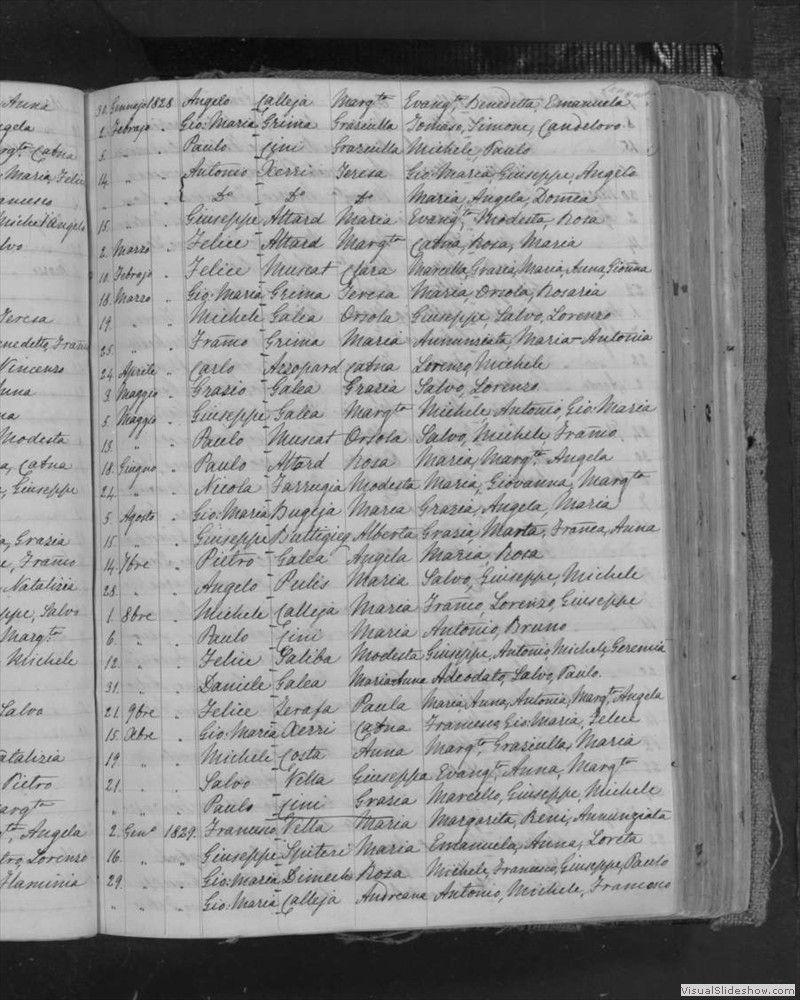 Anna
ngela
rgta Catna
Maria, Felic
ancesco
Michel'Angelo
lvo
Teresa
enedetto, Franco
Vincenzo
nna
na
Modesta
a, Catna
, Giuseppe
a, Grazia
e, Franco
Natalizia
ppe, Salvo
Margta
Michele
Salvo
atalizia
Pietro
argta
ta, Angela
tro, Lorenzo
Flaminia
31. Gennajo 1828 Angelo Calleja Margta Evangta Benedetta, Emanuela
2. Febrajo " Gio: Maria Grima Graziulla Tomaso, Simone, Candeloro
5. " " Paulo Cini Graziulla Michele, Paulo
14. " " Antonio Xerri Teresa Gio: Maria Giuseppe, Angelo
" " Do Do Do Maria, Angela, Domca
15. " " Giuseppe Attard Maria Evangta Modesta, Rosa
2. Marzo " Felice Attard Margta Catna, Rosa, Maria
10. Febrajo " Felice Muscat Clara Marcella, Grazia, Maria, Anna, Gionna
18. Marzo " Gio: Maria Grima Teresa Maria, Orsola, Rosaria
19. " " Michele Galea Orsola Giuseppe, Salvo, Lorenzo
25. " " Franco Grima Maria Annunziata, Maria-Antonia
24. Aprile " Carlo Azzopard Catna Lorenzo, Michele
3. Maggio " Grazio Galea Grazia Salvo, Lorenzo
5. Maggio " Giuseppe Galea Margta Michele Antonio, Gio: Maria
13. " " Paulo Muscat Orsola Salvo, Michele, Franco
18. Giugno " Paulo Attard Rosa Maria, Margta Angela
24. " " Nicola Farrugia Modesta Maria, Giovanna, Margta
5. Agosto " Gio: Maria Bugeja Maria Grazia, Angela, Maria
15. " " Giuseppe Buttigieg Alberta Grazia, Marta, Franca, Anna
14. 7bre " Pietro Galea Angela Maria, Rosa
28. " " Angelo Pulis Maria Salvo, Giuseppe, Michele
1. 8bre " Michele Calleja Maria Franco, Lorenzo, Giuseppe
6. " " Paulo Cini Maria Antonio, Bruno
12. " " Felice Saliba Modesta Giuseppe, Antonio, Michele, Geremia
31. " " Daniele Galea Maria-Anna Adeodato, Salvo, Paulo
21. 9bre " Felice Zerafa Paula Maria, Anna, Antonia, Margta, Angela
15. Xbre " Gio: Maria Xerri Catna Francesco, Gio: Maria, Felice
19. " " Michele Costa Anna Margta Graziulla, Maria
21. " " Salvo Vella Giuseppa Evangta, Anna, Margta
" " " Paulo Cini Grazia Marcello, Giuseppe, Michele
2. Geno 1829. Francesco Vella Maria Margarita, Reni, Annunziata
16. " " Giuseppe Spiteri Maria Emanuela, Anna, Loreta
29. " " Gio: Maria Dimech Rosa Michele, Francesco, Giuseppe, Paulo
" " " Gio: Maria Calleja Andreana Antonio, Michele, Francesco
VisualSlideshow.com